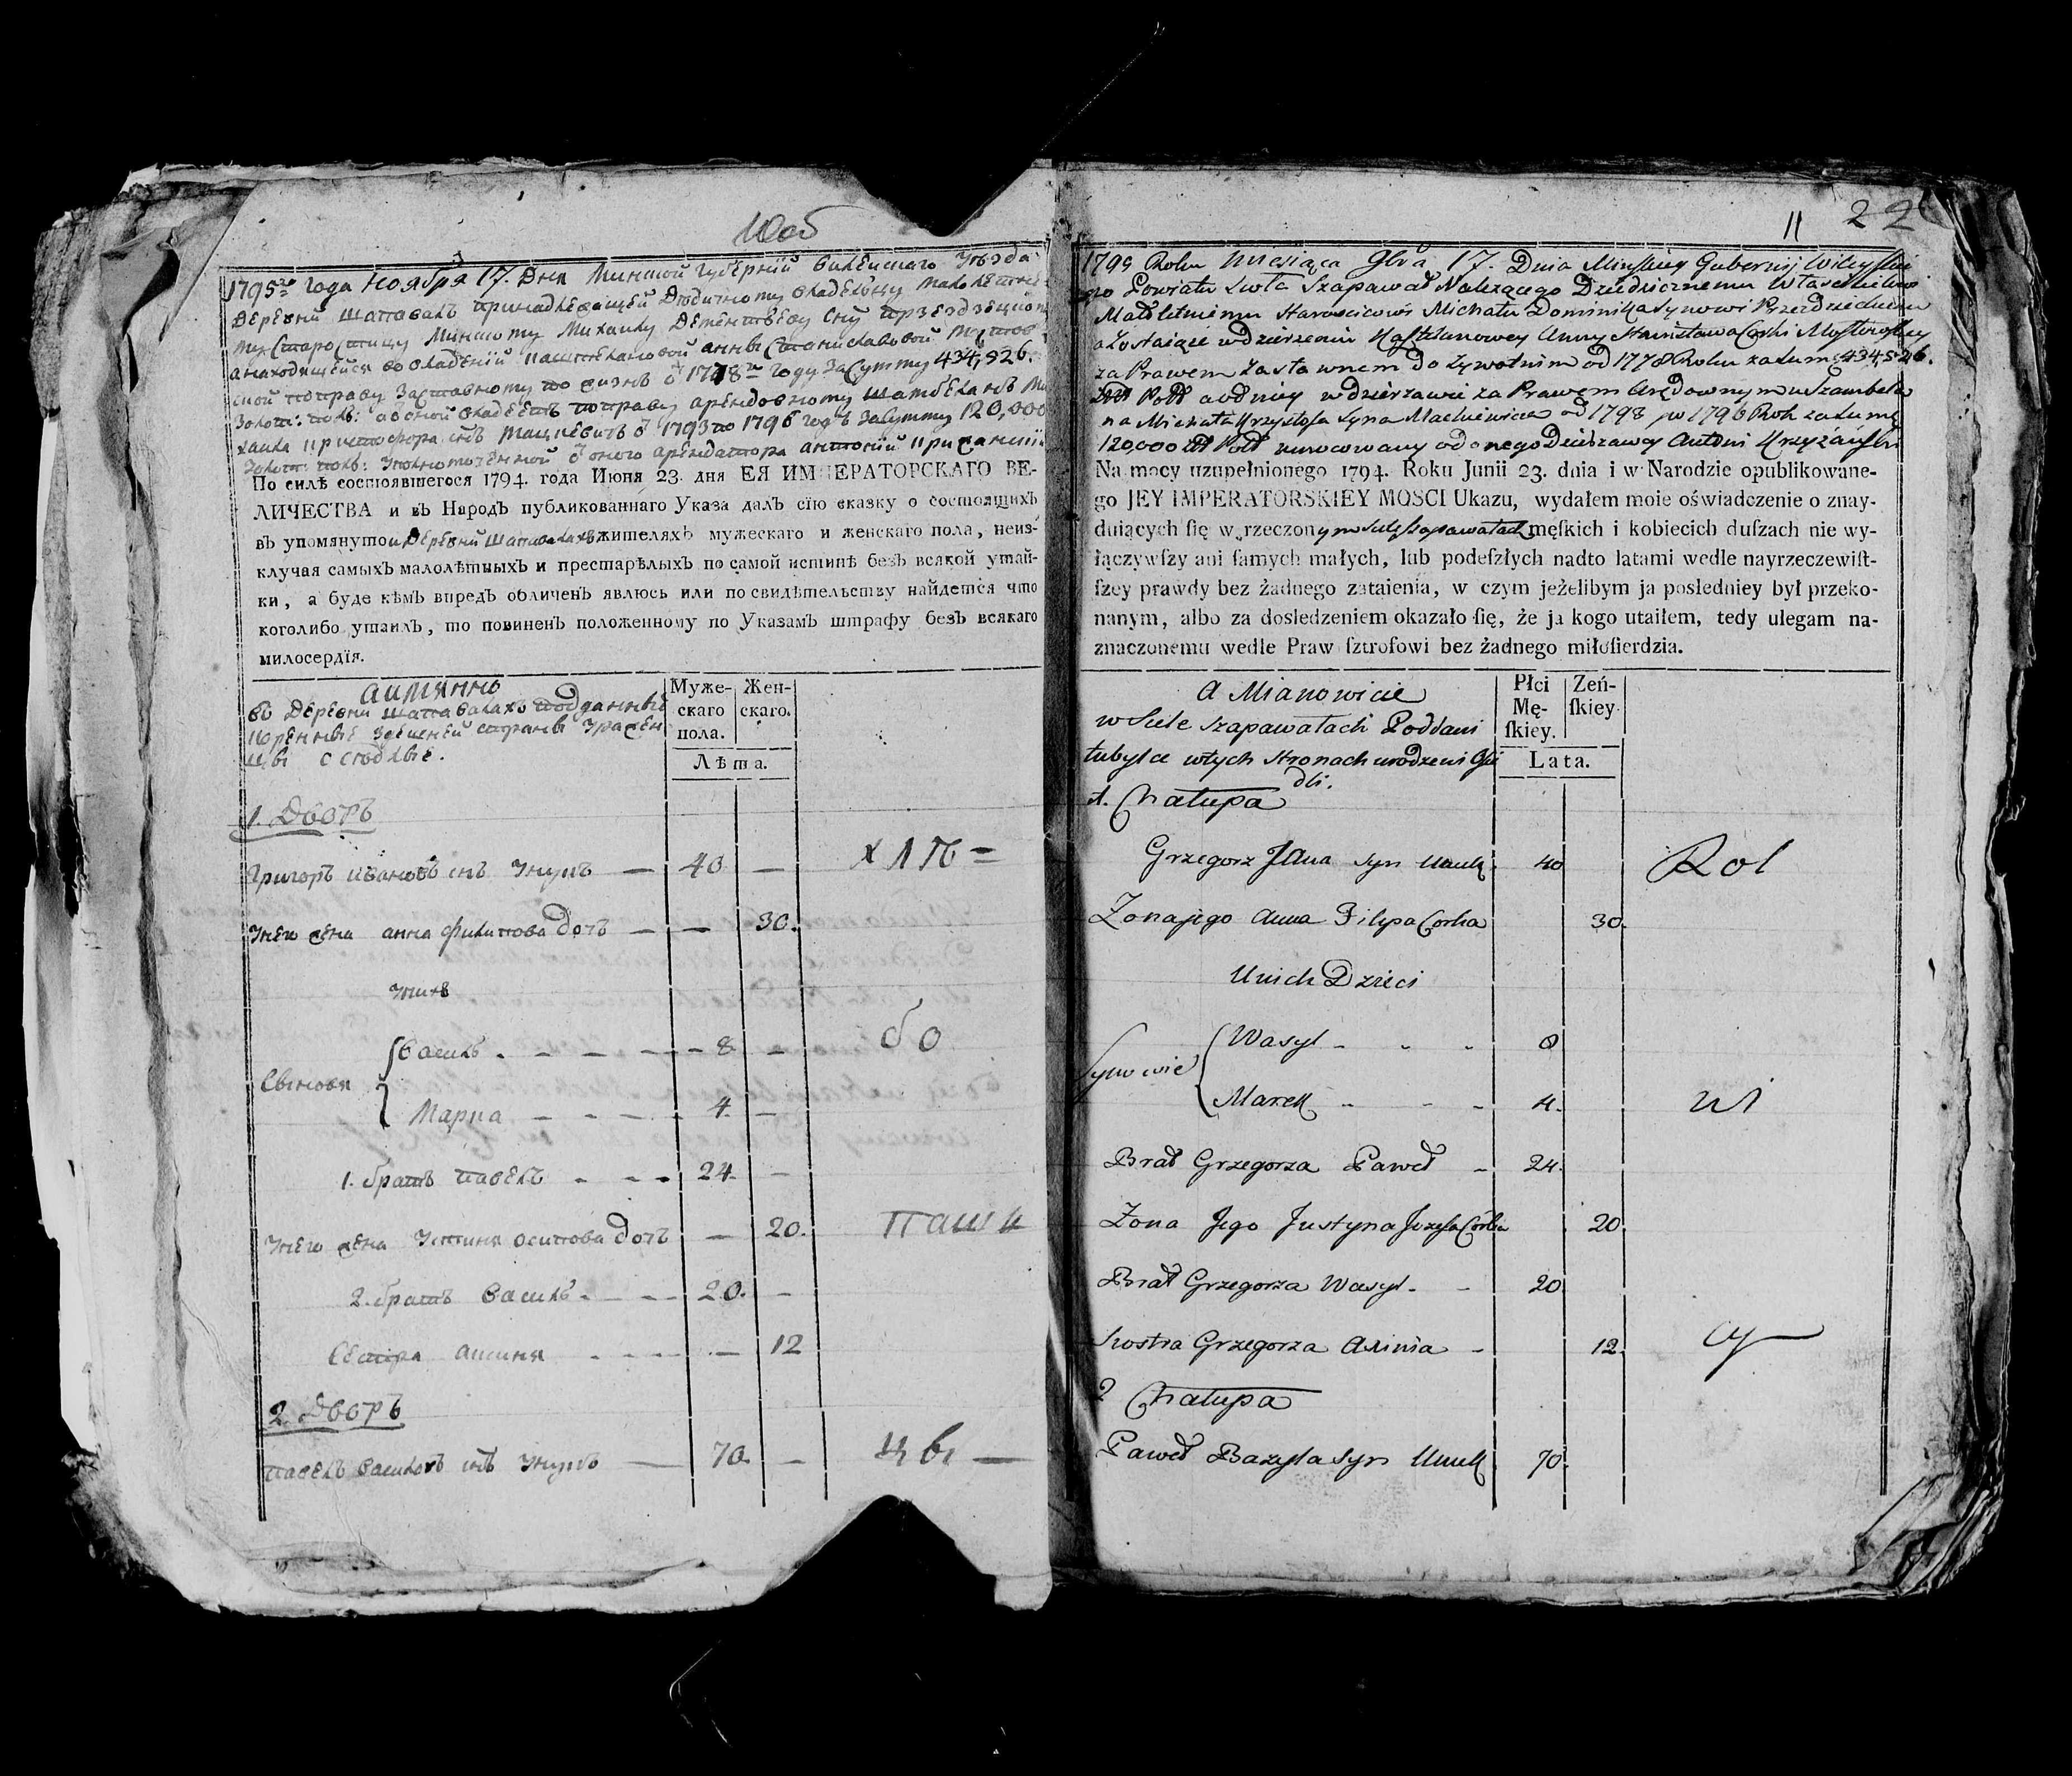 10об
1795го года Ноября 17. дня Минской Губернїи Вилейскаго уѣзда
деревни Шапавалъ принадлежащей дѣдичному владельцу
Минскому Михаилу сну
а находящейся во владенїи Анны Станиславовой
1778го году за сумму 434,526.
по праву арендовному
1793 по 1796 годъ за сумму 120,000
По силѣ состоявшегося 1794. года Июня 23. дня ЕЯ ИМПЕРАТОРСКАГО ВЕ-
ЛИЧЕСТВА и въ Народъ публикованнаго Указа далъ сїю сказку о состоящихъ
въ упомянутой деревни Шапавалахъ жителяхъ мужескаго и женскаго пола, неиз-
ключая самыхъ малолѣтныхъ и престарѣлыхъ по самой истинѣ безъ всякой утай-
ки, а буде кѣмъ впредь обличенъ явлюсь или по свидѣтельству найдется что
коголибо утаилъ, то повиненъ положенному по Указамъ штрафу безъ всякаго
милосердїя.
аимянно
во деревни Шапавалахъ подданные
коренные здешней страны урожен
цы
Муже-
скаго
пола.
Жен-
скаго.
Лѣта.
1. Дворъ
Григоръ Ивановъ снъ Унукъ — 40 —
х л п =
у него жена анна филипова дочь — — 30.
у нихъ
Сыновя
Василь - - - - 8 —
б о
Марка - - - - 4. —
1. братъ павелъ - - - 24. —
у него жена Устиня осипова дочъ — 20.
пашн
2. братъ Василь - - - 20. —
Сестра - - - - — 12
2. Дворъ
павелъ Васильевъ снъ Унукъ — 70. —
ц ы —
11 22
1795 Roku Miesiąca 9bra 17. Dnia Minskiey Gubernij Wileyskie
go Powiatu Sioła Szapawał Należącego Dziedzicznemu Właścicielowi
Małoletniemu Starościcowi Michału Dominika Synowi Przezdzieckiemu
a Zostaiące w dzierzeniu Kasztelanowey Anny Stanisława Corki Mostowskiey
za Prawem Zastawnem do żywotnim od 1778 Roku za sumę 434,526.
Zł Pol a od niey w dzierzawie za Prawem Arędownym u Szambela
na Michała Krzysztofa Syna Mackiewicza od 1793 po 1796 Rok za sumę
120,000 Zł Pol umocowany od onego Dzierzawcy Antoni Krzyżański
Na mocy uzupełnionego 1794. Roku Junii 23. dnia i w Narodzie opublikowane-
go JEY IMPERATORSKIEY MOSCI Ukazu, wydałem moie oświadczenie o znay-
duiących ſię w rzeczonym Siele Szapawałach męſkich i kobiecich duſzach nie wy-
łączywſzy ani ſamych małych, lub podeſzłych nadto latami wedle nayrzeczewiſt-
ſzey prawdy bez żadnego zataienia, w czym jeżelibym ja poſledniey był przeko-
nanym, albo za dosledzeniem okazało ſię, że ja kogo utaiłem, tedy ulegam na-
znaczonemu wedle Praw ſztrofowi bez żadnego miłoſierdzia.
a Mianowicie
w Siele Szapawałach Poddani
tubylce w tych Stronach urodzeni Osie
dli.
Płci
Mę-
ſkiey.
Zeń-
ſkiey.
Lata.
1. Chałupa
Grzegorz Jana Syn Unuk 40
Rol
Zona jego Anna Filipa Corka 30.
U nich Dzieci
Synowie
Wasyl - - - 8
Marek - - - 4.
ni
Brat Grzegorza Paweł - 24.
Zona Jego Justyna Jozefa Corka 20.
Brat Grzegorza Wasyl - - 20
Siostra Grzegorza - 12.
cy
2 Chałupa
Paweł Bazyla Syn Unuk 70.